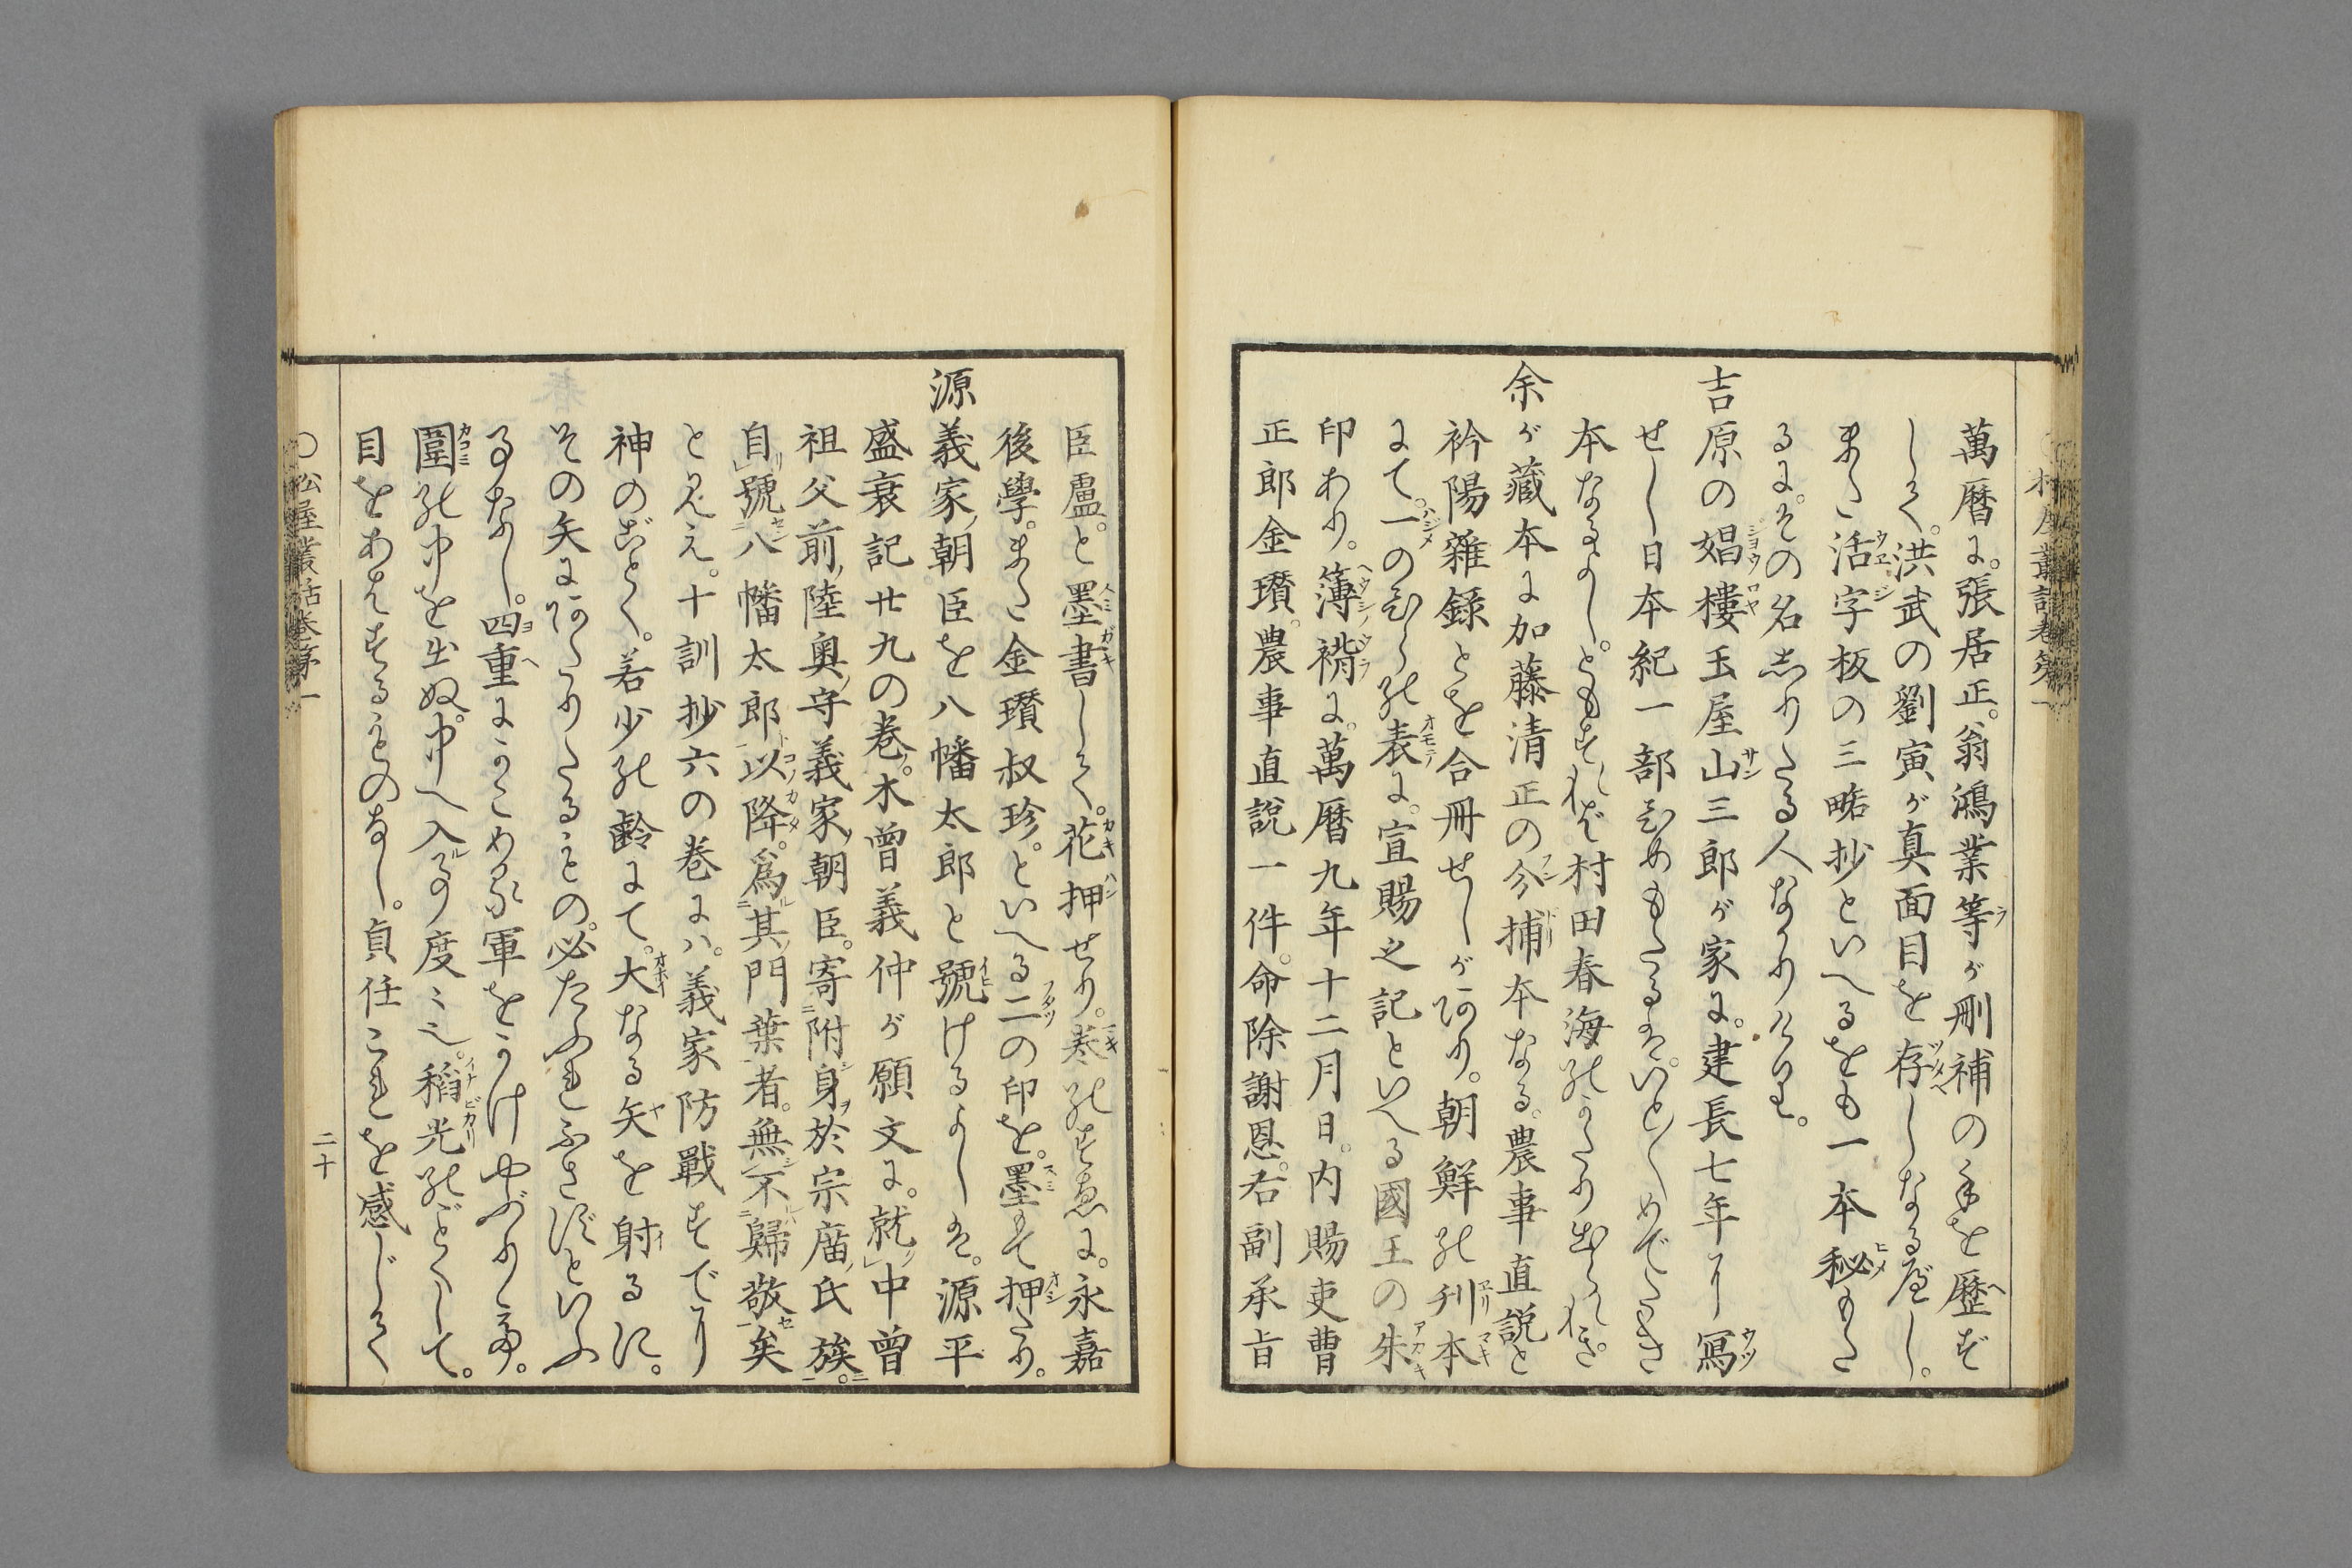 萬暦に。張居正。翁鴻業等が刪補の手を歴ず
して。洪武の劉寅が真面目を存しなるべし。
また活字板の三畧抄といへるをも一本秘もた
るに。その名しりたる人なかりけり。
吉原の娼樓玉屋山三郎が家に。建長七年に冩
せし日本紀一部ひめもたるは。いと〱めでたき
本なるよし。ともすれば村田春海のかたり出られき。
余が藏本に加藤清正の分捕本なる。農事直説と
衿陽雜録とを合冊せしがあり。朝鮮の刋本
にて。一のひらの表に。宣賜之記といへる國王の朱
印あり。簿褙に。萬暦九年十二月日。内賜吏曹
正郎金瓚。農事直説一件。命除謝恩。右副承旨
臣盧。と墨書して。花押せり。巻のすゑに。永嘉
後學。また金瓚叔珍。といへる二の印を。墨もて押たり。
源義家朝臣を八幡太郎と號けるよしは。源平
盛衰記廿九の巻。木曾義仲が願文に。就中曾
祖父前陸奥守義家朝臣。寄附身於宗廟氏族。
自號八幡太郎以降。爲其門葉者。無不歸敬矣
と見え。十訓抄六の巻には。義家防戰すでに
神のごとく。若少の齡にて。大なる矢を射るに。
その矢にあたりたるもの。必たふれふさずといふ
事なし。四重にかこめる軍をかけやぶりて。
圍の中を出ぬ。中へ入る事度〻也。稻光のごとくして。
目をあはするものなし。貞任これを感じて
○松屋叢話巻第一
二十